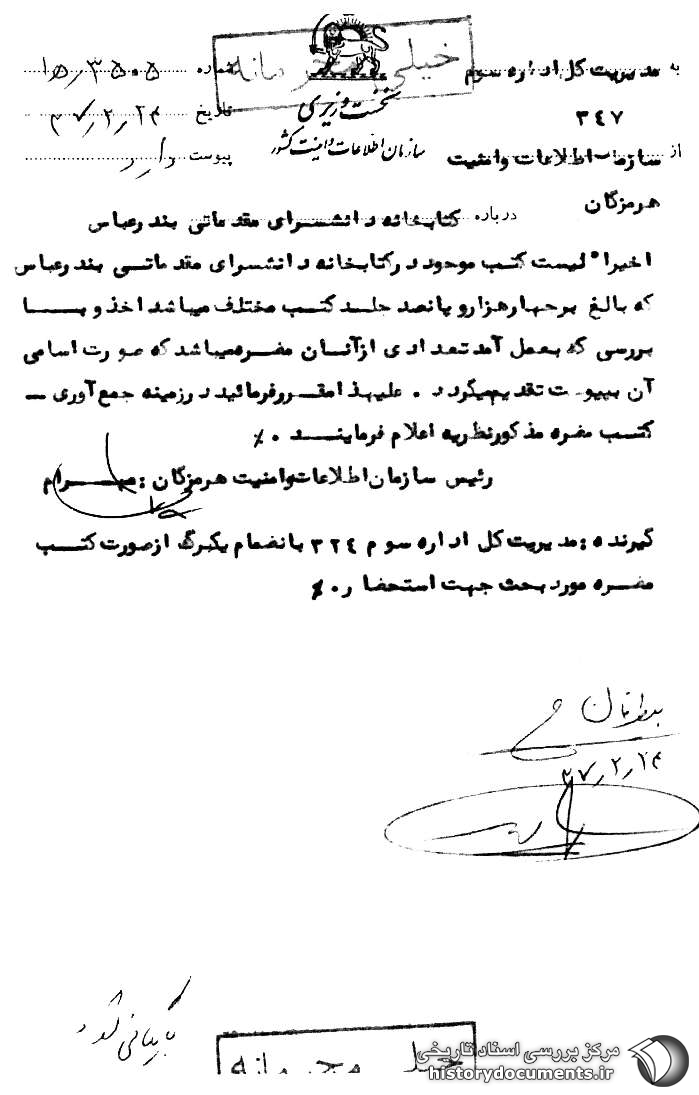 خیلی محرمانه
به مدیریت کل اداره سوم
۳۴۷
از سازمان اطلاعات وامنیت
هرمزگان
نخست وزیری
سازمان اطلاعات و امنیت کشور
شماره
تاریخ ۳۷/۲/۲۴
پیوست دارد
درباره کتابخانه دانشسرای مقدماتی بندرعباس
اخیرا" لیست کتب موجود درکتابخانه دانشسرای مقدماتی بندرعباس
که بالغ برچهارهزاروپانصد جلد کتب مختلف میباشد اخذ و با
بررسی که بعمل آمد تعدادی ازآنان مضرهمیباشد که صورت اسامی
آن بپیوست تقدیم میگردد . علیهذا مقررفرمائید درزمینه جمع آوری –
کتب مضره مذکورنظریه اعلام فرمایند .٪
رئیس سازمان اطلاعات وامنیت هرمزگان :
گیرنده : مدیریت کل اداره سوم ۳۲٤ بانضمام یکبرگ ازصورت کتب
مضره مورد بحث جهت استحضار .٪
۳۷/۲/۲۴
بایگانی شود
خیلی محرمانه
مرکز بررسی اسناد تاریخی
historydocuments.ir